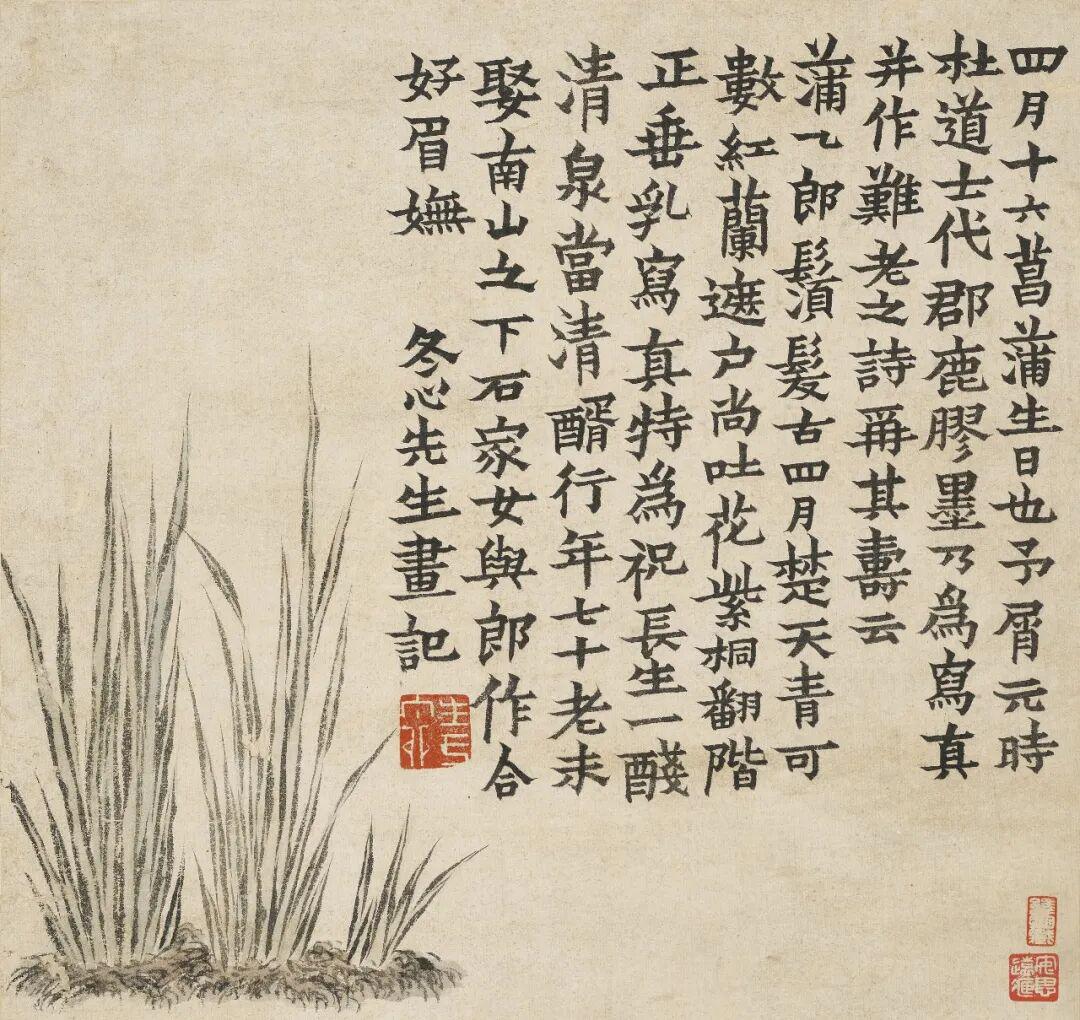 四月十六菖蒲生日也予屑元時
杜道士代郡鹿膠墨乃為寫真
并作難老之詩爯其壽云
蒲乀郎鬚髮古四月楚天青可
數紅蘭遮户尚吐花紫桐翻階
正垂乳寫真特為祝長生一醆
清泉當清醑行年七十老未
娶南山之下石家女與郎作合
好眉嫵
冬心先生畫記